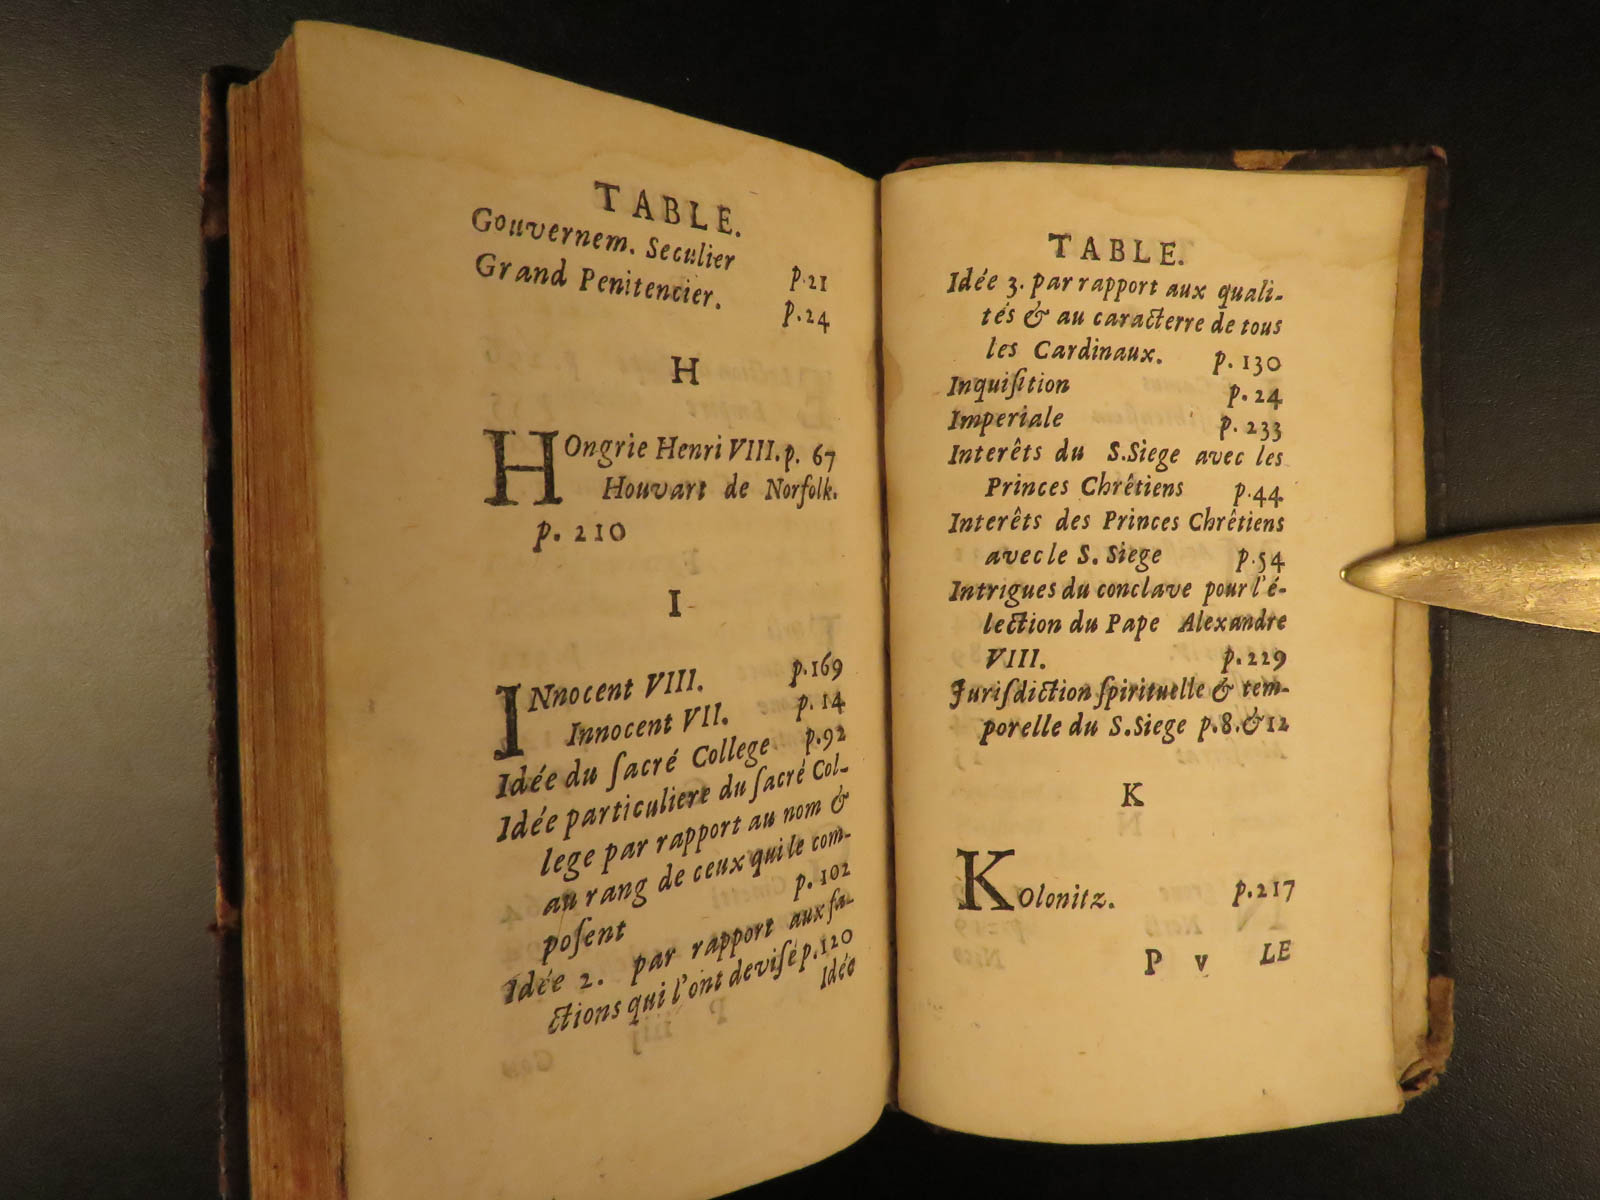 TABLE.
Gouvernem. Seculier p.21
Grand Penitencier. p.24
H
HOngrie Henri VIII. p. 67
Houvart de Norfolk.
p. 210
I
INnocent VIII. p.169
Innocent VII. p. 14
Idée du ſacré College p.92
Idée particuliere du ſacré Col-
lege par rapport au nom &
au rang de ceux qui le com-
poſent p. 102
Idée 2. par rapport aux fa-
ctions qui l'ont deviſé p.120
Idée
TABLE.
Idée 3. par rapport aux quali-
tés & au caracterre de tous
les Cardinaux. p. 130
Inquiſition p. 24
Imperiale p. 233
Interêts du S.Siege avec les
Princes Chrêtiens p.44
Interêts des Princes Chrêtiens
avec le S. Siege p.54
Intrigues du conclave pour l'é-
lection du Pape Alexandre
VIII. p.229
Juriſdiction ſpirituelle & tem-
porelle du S.Siege p.8.&12
K
KOlonitz. p.217
P v LE